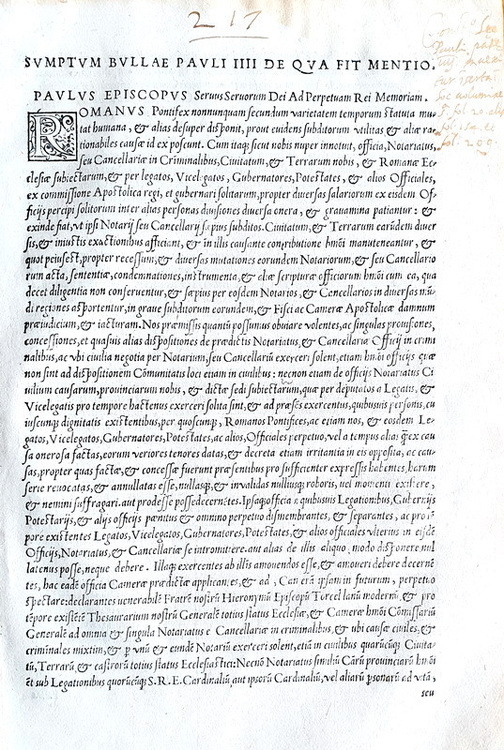 217
SVMPTVM BVLLAE PAVLI IIII DE QVA FIT MENTIO.
PAVLVS EPISCOPVS Seruus Seruorum Dei Ad Perpetuam Rei Memoriam.
ROMANVS Pontifex nonnunquam secundum varietatem temporum statuta mu
tat humana, & alias desuper disponit, prout euidens subditorum vtilitas & aliæ ra
tionabiles causæ id exposcunt. Cum itaq; sicut nobis nuper innotuit, officia, Notariatus,
seu Cancellariæ in Criminalibus, Ciuitatum, & Terrarum nobis, & Romanæ Ec-
clesiæ subiectarum, & per legatos, Vicelegatos, Gubernatores, Potestates, & alios Officiales,
ex commissione Apostolica regi, et gubernari solitarum, propter diuersas salariorum ex eisdem Of-
ficijs percipi solitorum inter alias personas diuisiones diuersa onera, & grauamina patiantur: &
exinde fiat, vt ipsi Notarij seu Cancellarij sæpius subditos. Ciuitatum, & Terrarum earundem diuer
sis, & iniustis exactionibus afficiant, & in illis causante contributione hmõi manuteneantur, &
quot peius est, propter recessum, & diuersas mutationes eorundem Notariorum, & seu Cancellario
rum acta, sententiæ, condemnationes, instrumenta, & aliæ scripturæ officiorum hmõi cum ea, qua
decet diligentia non conseruentur, & sæpius per eosdem Notarios, & Cancellarios in diuersas mũ
di regiones asportentur, in graue subditorum eorundem, & Fisci ac Cameræ Apostolicæ damnum
præiudicium, & iacturam. Nos præmissis quantũ possumus obuiare volentes, ac singulas prouisiones,
concessiones, et quasuis alias dispositiones de prædictis Notariatus, & Cancellariæ Officij in crimi
nalibus, ac vbi ciuilia negotia per Notarium, seu Cancellariũ exerceri solent, etiam hmõi officijs quæ
non sint ad dispositionem Comunitatis loci etiam in ciuilibus: necnon etiam de officijs Notariatus Ci
uilium causarum, prouinciarum nobis, & dictæ sedi subiectarum, quæ per deputatos a Legatis, &
Vicelegatis pro tempore hactenus exerceri solita sint, & ad præsens exercentur, quibusuis personis, cu
iuscunq; dignitatis existentibus, per quoscunq, Romanos Pontifices, ac etiam nos, & eosdem Le-
gatos, Vicelegatos, Gubernatores, Potestates, ac alios, Officiales perpetuo, vel a tempus alias q̃ex cau
sa onerosa factas, eorum veriores tenores datas, & decreta etiam irritantia in eis opposita, ac cau-
sas, propter quas factæ, & concessæ fuerunt præsentibus pro sufficienter expressis habentes, harum
serie reuocatas, & annullatas esse, nullasq, & inualidas nulliusq; roboris, uel momenti existere,
& nemini suffragari. aut prodesse posse decernẽtes. Ipsaq; officia e quibusuis Legationibus, Gubernijs
Potestarijs, & alijs officijs pænitus & omnino perpetuo dismembrantes, & separantes, ac pro tẽ
pore existentes Legatos, Vicelegatos, Gubernatores, Potestates, & alios officiales vlterius in eisdẽ
Officijs, Notariatus, & Cancellariæ se intromittere. aut alias de illis aliquo, modo disponere nul
latenus posse, neque debere. Illaq; exercentes ab illis amouendos esse, & amoueri debere decernẽ
tes, hac eadẽ officia Cameræ prædictæ applicantes, & ad, Camerã ipsam in futurum, perpetuo
spectare: declarantes uenerabilẽ Fratrẽ nostrũ Hieronymũ Episcopũ Torcellanũ modernũ, & pro
tẽpore existẽtẽ Thesaurarium nostrũ Generalẽ totius status Ecclesiæ, & Cameræ hmõi Cõmissariũ
Generalẽ ad omnia & singula Notariatus e Cancellariæ in criminalibus, & ubi causæ ciuiles, &
criminales mixtim, & p vnũ & eundẽ Notariũ exerceri solent, etiã in ciuilibus quarũcũq; Ciuita-
tũ, Terrarũ & castrorũ totius status Ecclesiastici: Necnõ Notariatus similiũ Cãrũ prouinciarũ hmõi
et sub Legationibus quorũcũq; S. R. E. Cardinaliũ, aut ipsorũ Cardinaliũ, vel aliarũ p̃sonarũ ad vitã,
seu